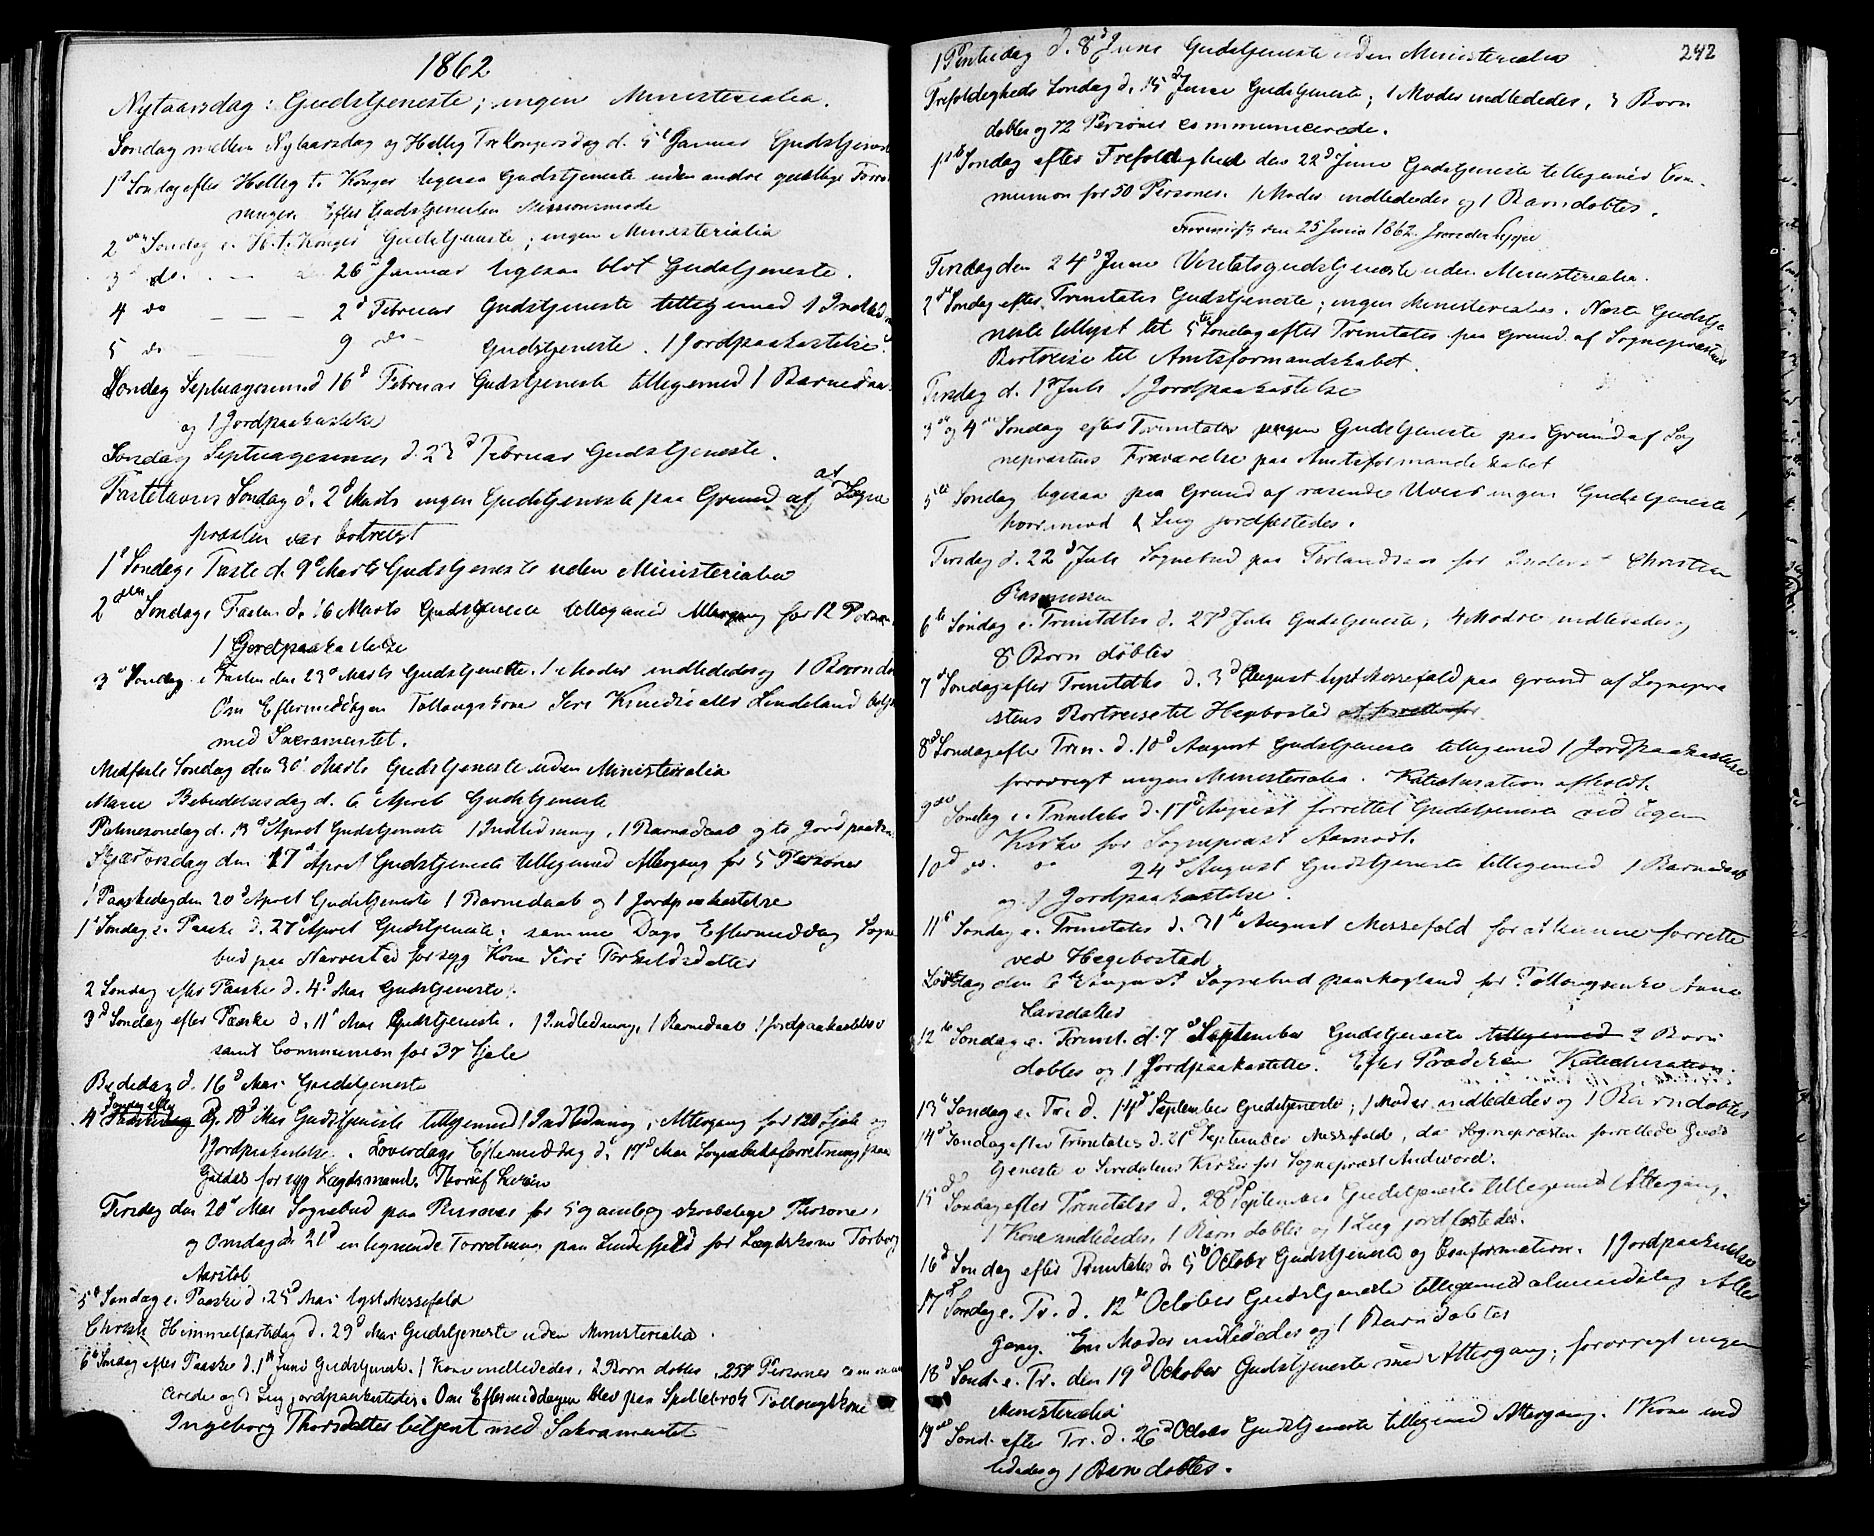 1862
Nytaarsdag: Gudstjeneste; ingen Ministerialia.
Søndag mellem Nytaarsdag og Hellig Trekongersdag d. 5 Januar Gudstjeneste
1ste Søndag efter Hellig t. Konger ligesaa Gudstjeneste uden andre geistlige Forret
ninger. Efter Gudstjenesten Missionsmøde
2den Søndag e. H. t. Konger Gudstjeneste; ingen Ministerialia
3 do. 26 Januar ligesaa blot Gudstjeneste.
4 do 2d Februar Gudstjeneste tilligemed 1 Indledn
5 do 9 do Gudstjeneste. 1 Jordpaakastelse.
Søndag Septuagesima d 16d Februar Gudstjeneste tilligemed 1 Barnedaab
og 1 Jordpaakastelse
Søndag d. 23d Februar Gudstjeneste.
Fastelavns Søndag d. 2d Marts ingen Gudstjeneste paa Grund af at Sogne
præsten var bortreist
1ste Søndag i Faste d. 9d Marts Gudstjeneste uden Ministerialia
2den Søndag i Fasten d. 16 Marts Gudstjeneste tilligemed Altergang for 12 Person
1 Jordpaakastelse
3d Søndag i Fasten den 23d Marts Gudstjeneste. 1 Moder indlededes og 1 Barn dø
Om Eftermiddagen Fattigkone Siri Lindeland betj
med Sacramentet.
Midfaste Søndag den 30d Marts Gudstjeneste uden Ministerialia
Marie Bebudelsesdag d. 6 April Gudstjeneste
Palmesøndag d. 13d April Gudstjeneste 1 Indledning, 1 Barnedaab og to Jordpaakas
Skjærtorsdag den 17d April Gudstjeneste tilligemed Altergang for 5 Personer
1 Paaskedag den 20d April Gudstjeneste 1 Barnedaab og 1 Jordpaakastelse
1ste Søndag e. Paaske d. 27d April Gudstjeneste; samme Dags Eftermiddag Sogne
bud paa Narvestad for syg Kone Siri Torkildsdatter
2 Søndag efter Paaske d. 4d Mai Gudstjeneste.
3d Søndag efter Paaske d. 11d Mai Gudstjeneste. 1 Indledning, 1 Barnedaab 1 Jordpaakastelse
samt Communion for 37 Sjele
Bededag d. 16d Mai Gudstjeneste
4d Søndag efter d. 18d Mai Gudstjeneste tilligemed 1 Indledning, Altergang for 120 Sjele og
1 Jordpaakastelse. Løverdags Eftermiddag d. 17d Mai Sognebudsforretning paa
for syg Lægdsmand
Tirsdag den 20d Mai Sognebud paa for 5 gamle og skrøbelige Personer,
og Onsdag d. 21d en lignende Forretning paa Lindefjeld for Lægdskone Torborg
Aarstøl
5d Søndag e. Paaske d. 25d Mai lyst Messefald
Christi Himmelfartsdag d. 29d Mai Gudstjeneste uden Ministerialia.
6te Søndag efter Paaske d. 1ste Juni Gudstjeneste. 1 Kone indlededes, 2 Børn døbtes, 258 Personer commun
cerede og 3 Lig jordpaakastedes. Om Eftermiddagen blev paa Fattigkone
Ingeborg Thorsdatter betjent med Sakramentet
242
1 Pintsedag d. 8d Juni Gudstjeneste uden Ministerialia
Trefoldigheds Søndag d. 15d Juni Gudstjeneste; 1 Moder indlededes, 3 Børn
døbtes og 72 Personer communicerede.
1ste Søndag efter Trefoldighed den 22d Juni Gudstjeneste tilligemed Com-
munion for 50 Personer. 1 Moder indlededes og 1 Barn døbtes.
Foreviist den 25 Juni 1862.
Tirsdag den 24d Juni Visitatsgudstjeneste uden Ministerialia.
2den Søndag efter Trinitatis Gudstjeneste; ingen Ministerialia. Næste Gudstje
neste tillyst til 5te Søndag efter Trinitatis paa Grund af Sognepræstens
Bortreise til Amtsformandskabet.
Tirsdag d. 1ste Juli 1 Jordpaakastelse
3die og 4de Søndag efter Trinitatis ingen Gudstjeneste paa Grund af Sog
nepræstens Fraværelse paa Amtsformandskabet
5te Søndag ligesaa paa Grund af rasende Uveir ingen Gudstjeneste,
hvorimod 2 Lig jordfæstedes.
Tirsdag d. 22d Juli Sognebud paa for Inderst Christian
Rasmussen
6te Søndag e. Trinitatis d. 27d Juli Gudstjeneste, 4 Mødre indlededes og
8 Børn døbtes
7d Søndag efter Trinitatis d. 3d August lyst Messefald paa Grund af Sognepræ
stens Bortreise til Hægbostad at forrette for
8d Søndag efter Trin. d. 10d August Gudstjeneste tilligemed 1 Jordpaakastelse
forøvrigt ingen Ministerialia. Katekisation afholdt.
9de Søndag e. Trinitatis d. 17d August forrettet Gudstjeneste ved egen
Kirke for Sognepræst Aamodt.
10d do. do 24d August Gudstjeneste tilligemed 1 Barnedaab
og 1 Jordpaakastelse.
11te Søndag e. Trinitatis d. 31te August Messefald for at kunne forrette
ved Hægebostad.
Løverdag den 6te August Sognebud paa Kogland for Fattigenke Anne
Larsdatter
12te Søndag e. Trinit. d. 7d September Gudstjeneste tilligemed 2 Børn
døbtes og 1 Jordpaakastelse. Efter Prædiken Katekisation.
13te Søndag e. Tr. d. 14d September Gudstjeneste; 1 Moder indlededes og 1 Barn døbtes
14d Søndag efter Trinitatis d. 21d September Messefald, da Sognepræsten forrettede Guds
tjeneste i Siredalens Kirke for Sognepræst
15d Søndag efter Trinitatis d. 28d September Gudstjeneste tilligemed Altergang.
1 Kone indlededes, 1 Barn døbtes og 1 Lig jordfæstedes.
16d Søndag efter Trinitatis d. 5te October Gudstjeneste og Confirmation. 1 Jordpaakastelse
17d Søndag e. Tr. d. 12te October Gudstjeneste tilligemed almindelig Alter
gang. En Moder indlededes og 1 Barn døbtes
18d Sønd. e. Tr. den 19d October Gudstjeneste med Altergang; forøvrigt ingen
Ministerialia
19de Sønd. efter Tr. d. 26d October Gudstjeneste tilligemed Altergang. 1 Kone ind
lededes og 1 Barn døbtes.